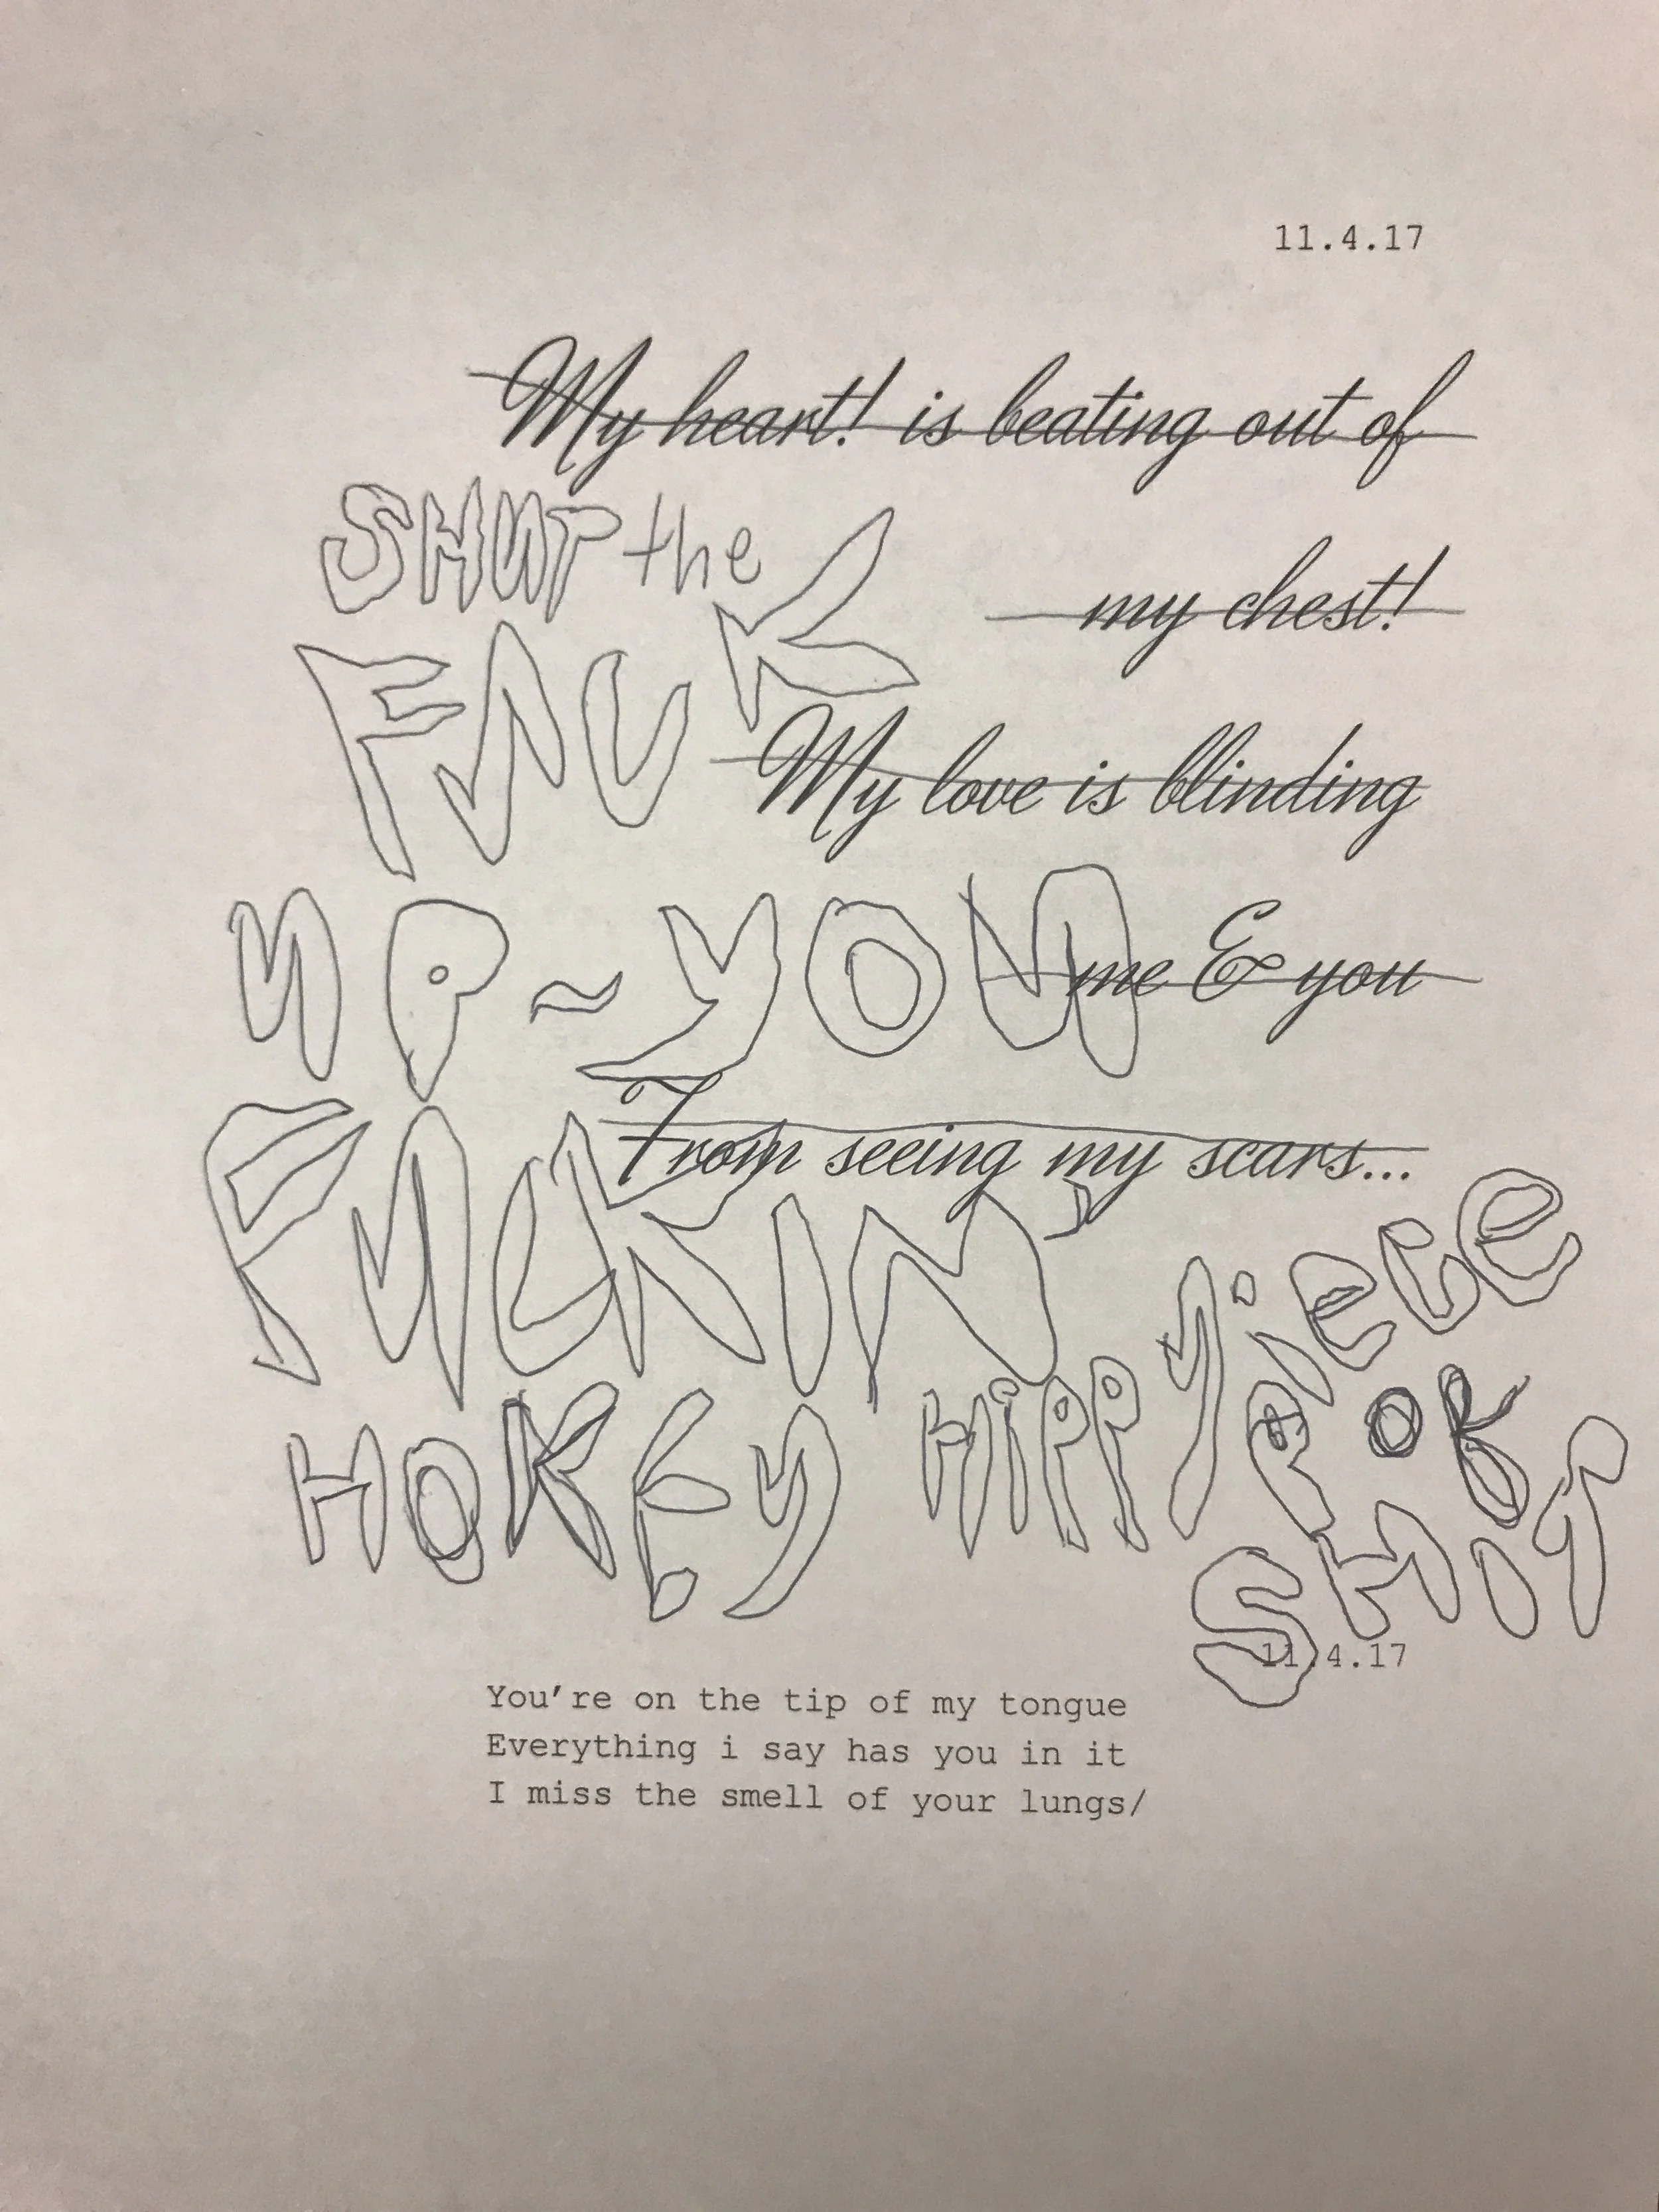 11.4.17
My heart! is beating out of
SHUT the
my chest!
FUCK
My love is blinding
UP ~ YOU
me & you
From seeing my scars...
FUCKIN'
HOKEY HIPPY
PIECE
OF
SHIT
11.4.17
You're on the tip of my tongue
Everything i say has you in it
I miss the smell of your lungs/